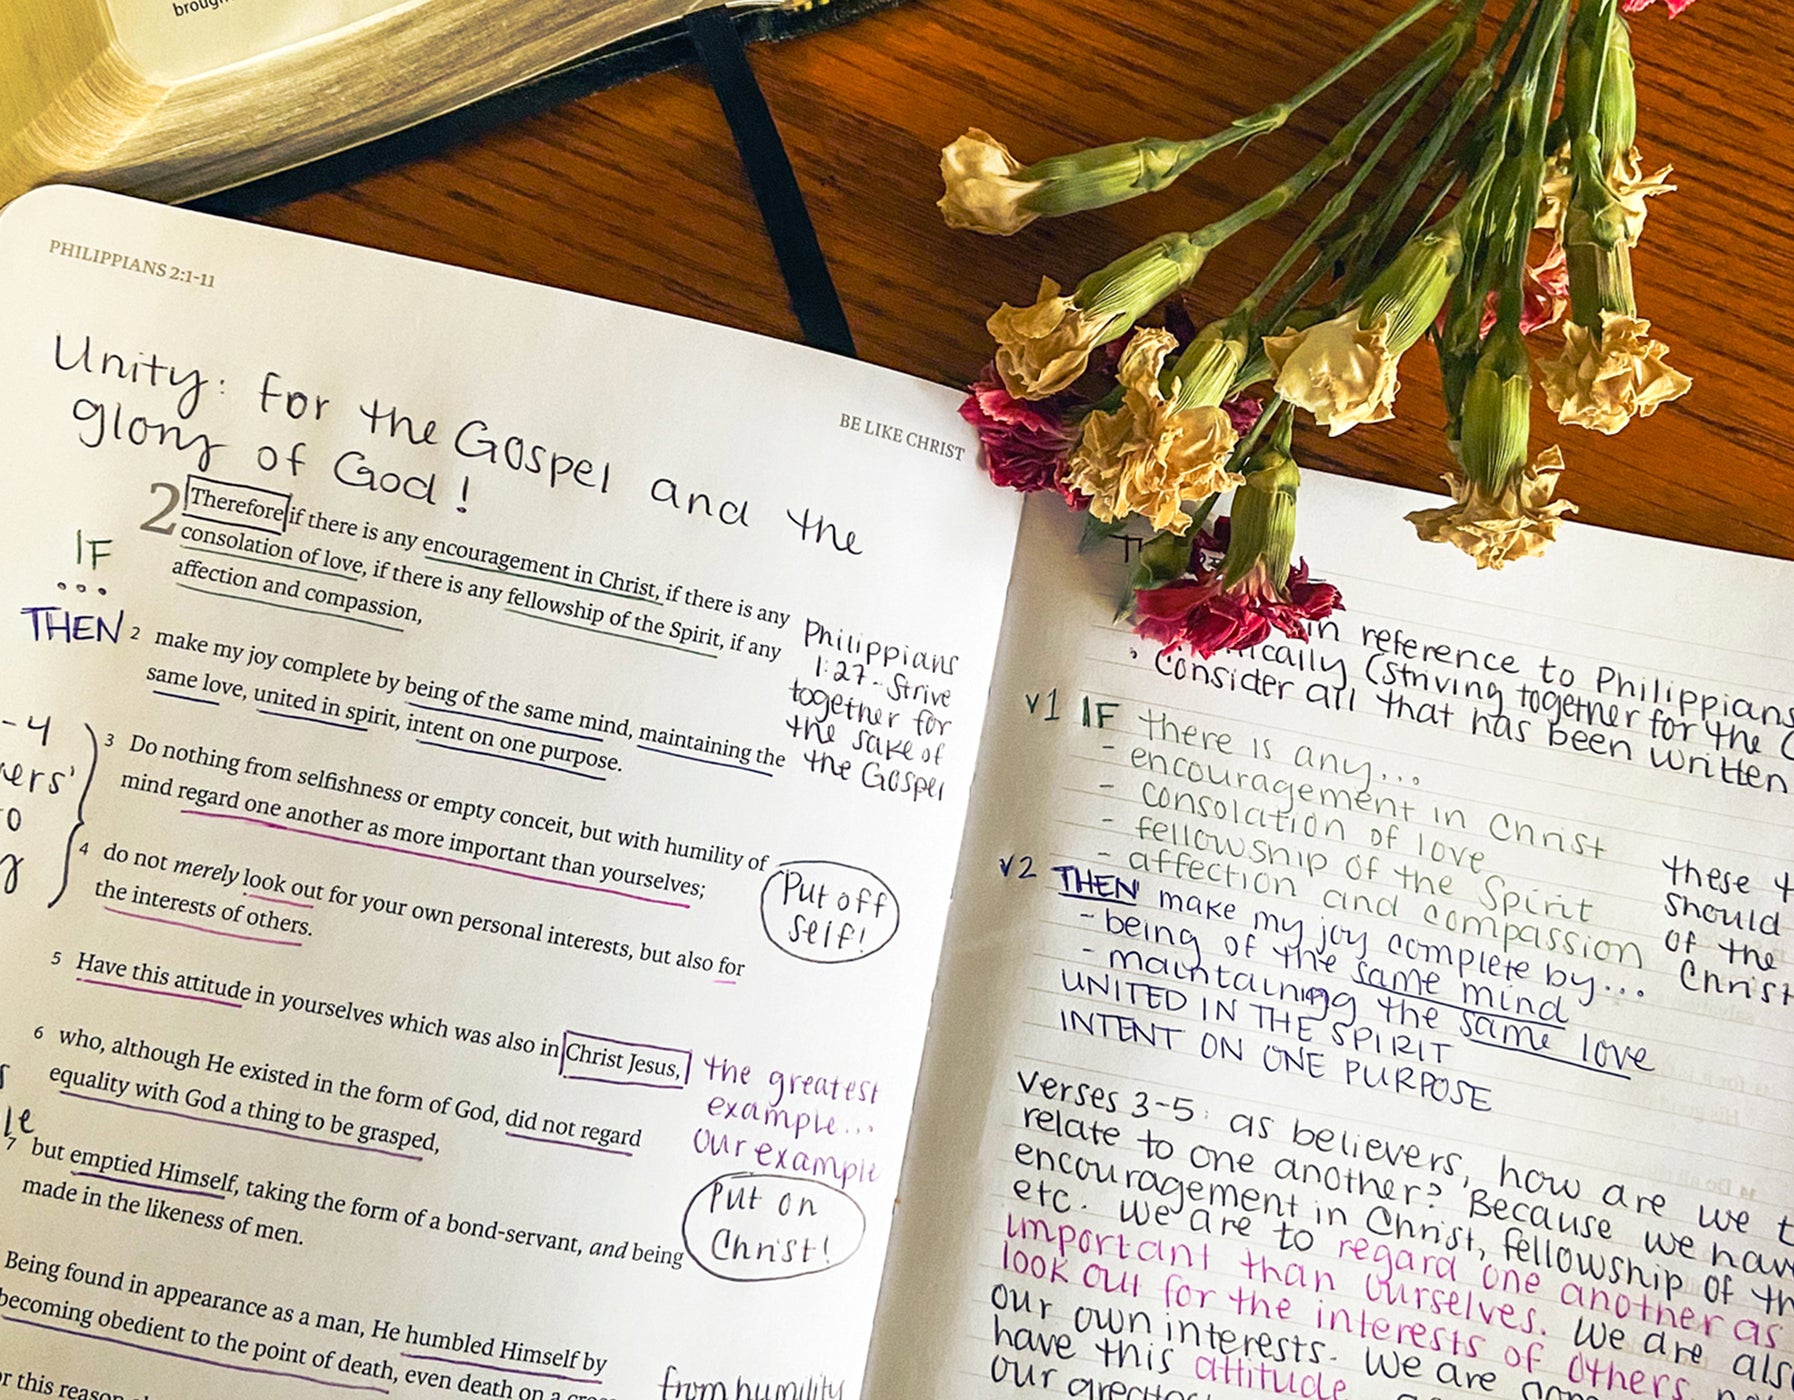 brough
PHILIPPIANS 2:1-11
BE LIKE CHRIST
Unity: for the Gospel and the
glory of God!
IF
...
THEN
2 Therefore if there is any encouragement in Christ, if there is any
consolation of love, if there is any fellowship of the Spirit, if any
affection and compassion,
2 make my joy complete by being of the same mind, maintaining the
same love, united in spirit, intent on one purpose.
Philippians
1:27 - Strive
together for
the sake of
the Gospel
-4
3 Do nothing from selfishness or empty conceit, but with humility of
mind regard one another as more important than yourselves;
4 do not merely look out for your own personal interests, but also for
the interests of others.
Put off
self!
5 Have this attitude in yourselves which was also in Christ Jesus,
6 who, although He existed in the form of God, did not regard
equality with God a thing to be grasped,
the greatest
example...
our example
7 but emptied Himself, taking the form of a bond-servant, and being
made in the likeness of men.
Put on
Christ!
Being found in appearance as a man, He humbled Himself by
becoming obedient to the point of death, even death on a
this reason
from humility
in reference to Philippians
(striving together for the
Consider all that has been written
v1 IF there is any...
- encouragement in Christ
- consolation of love
- fellowship of the Spirit
- affection and compassion
v2 THEN make my joy complete by...
- being of the same mind
- maintaining the same love
UNITED IN THE SPIRIT
INTENT ON ONE PURPOSE
these
should
of the
Christ
Verses 3-5: as believers, how are we
relate to one another? Because we have
encouragement in Christ, fellowship of
etc. We are to regard one another as
important than ourselves. We are
look out for the interests of others
our own interests. We are
have this attitude
our